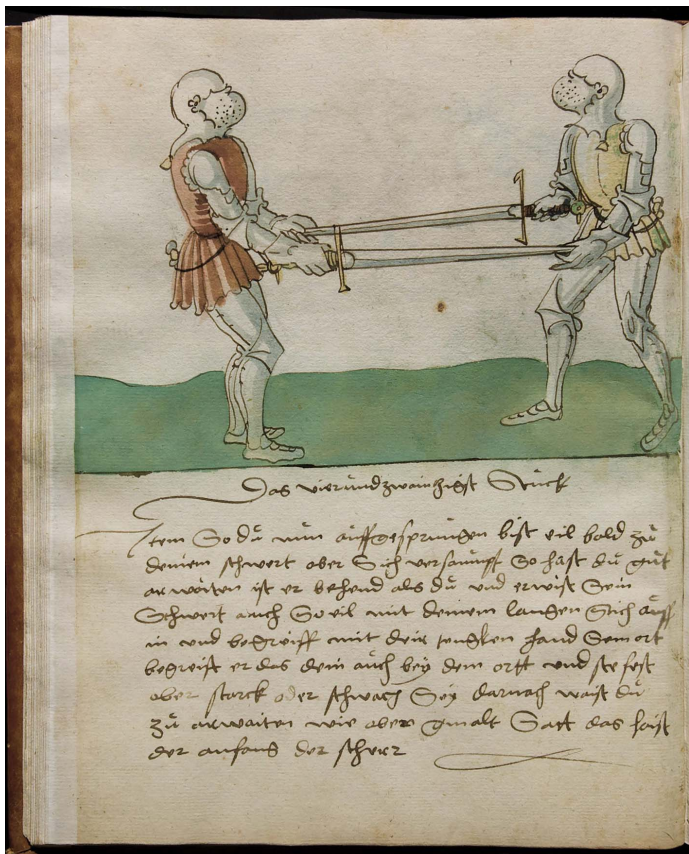 Das vierundzwainzigist Stuck
Item So du nun auffgesprungen bist eil bald zu
deinem schwert ober Sich versaumpt So hast du gut
arwaiten ist er behend als du und erwist Sein
Schwert auch So eil mit deinem langen Stich auff
in und begreiff mit deir lengken hand Sein ort
begreift er das dein auch bey dem ortt und ste fest
aber starck oder schwach Sey darnach waist du
zu arwaiten wie oben gmalt Satt das haist
der anfang der scherr